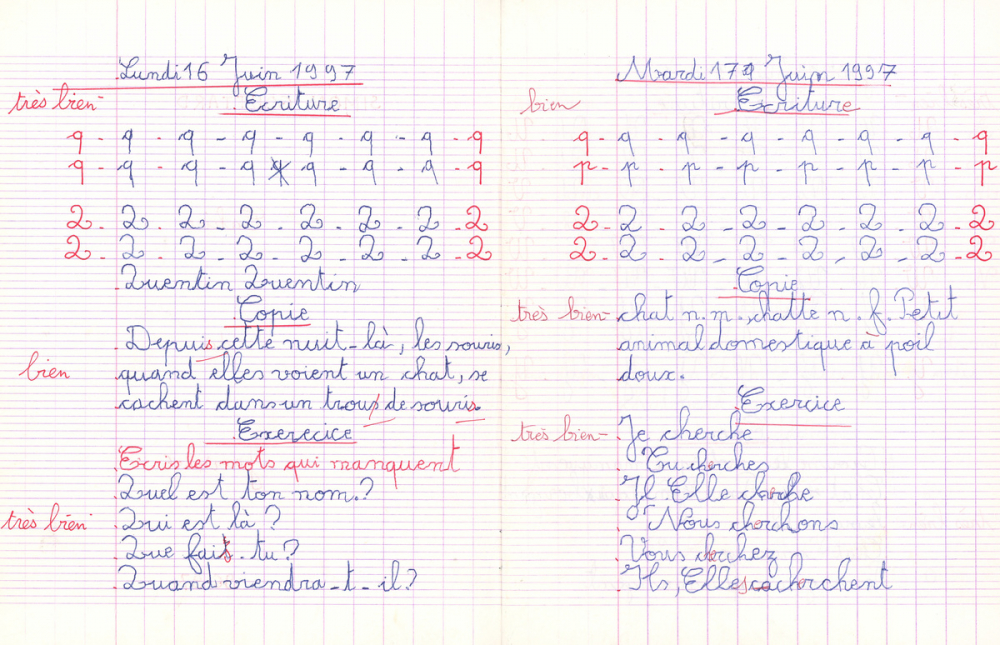 Lundi 16 Juin 1997
très bien Ecriture
q - q - q - q - q - q - q - q
q - q - q - q q - q - q - q
Q - Q - Q - Q - Q - Q - Q - Q
Q - Q - Q - Q - Q - Q - Q - Q
Quentin Quentin
Copie
Depuis cette nuit-là, les souris,
bien quand elles voient un chat, se
cachent dans un trou de souris.
Exerecice
Ecris les mots qui manquent
Quel est ton nom.?
très bien Qui est là ?
Que fais-tu?
Quand viendra-t-il?
Mardi 17 Juin 1997
bien Ecriture
q - q - q - q - q - q - q - q
p - p - p - p - p - p - p - p
Q - Q - Q - Q - Q - Q - Q - Q
Q - Q - Q - Q - Q - Q - Q - Q
Copie
très bien - chat n.m., chatte n.f. Petit
animal domestique à poil
doux.
Exercice
très bien - Je cherche
Tu cherches
Il Elle cherche
Nous cherchons
Vous cherchez
Ils, Elles cherchent